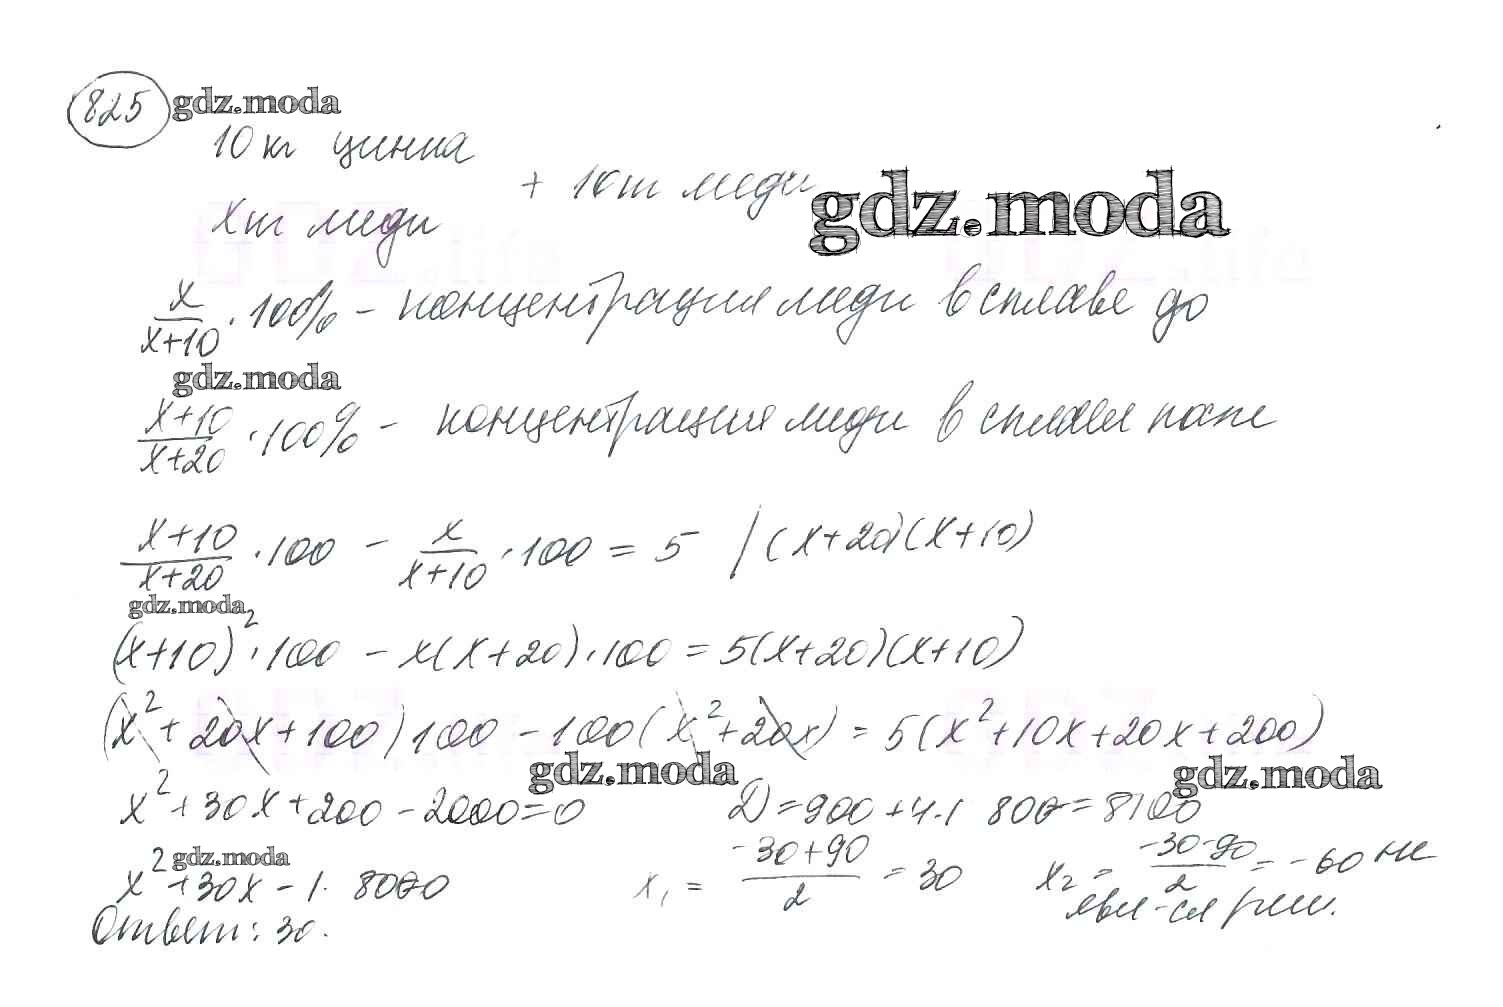 825 gdz.moda
10 кг цинка
+ 10 т меди
x т меди
gdz.moda
x/(x+10) · 100% – концентрация меди в сплаве до
gdz.moda
(x+10)/(x+20) · 100% – концентрация меди в сплаве
(x+10)/(x+20) · 100 – x/(x+10) · 100 = 5 | (x+20)(x+10)
gdz.moda
(x+10)² · 100 – x(x+20) · 100 = 5(x+20)(x+10)
(x² + 20x + 100) 100 – 100(x² + 20x) = 5(x² + 10x + 20x + 200)
gdz.moda gdz.moda
x² + 30x + 200 – 2000 = 0 D = 900 + 4·1 800 = 8100
gdz.moda
x² + 30x – 1 · 800 x₁ = (-30+90)/2 = 30 x₂ = (-30-90)/2 = -60 не
явл-ся реш.
Ответ: 30.